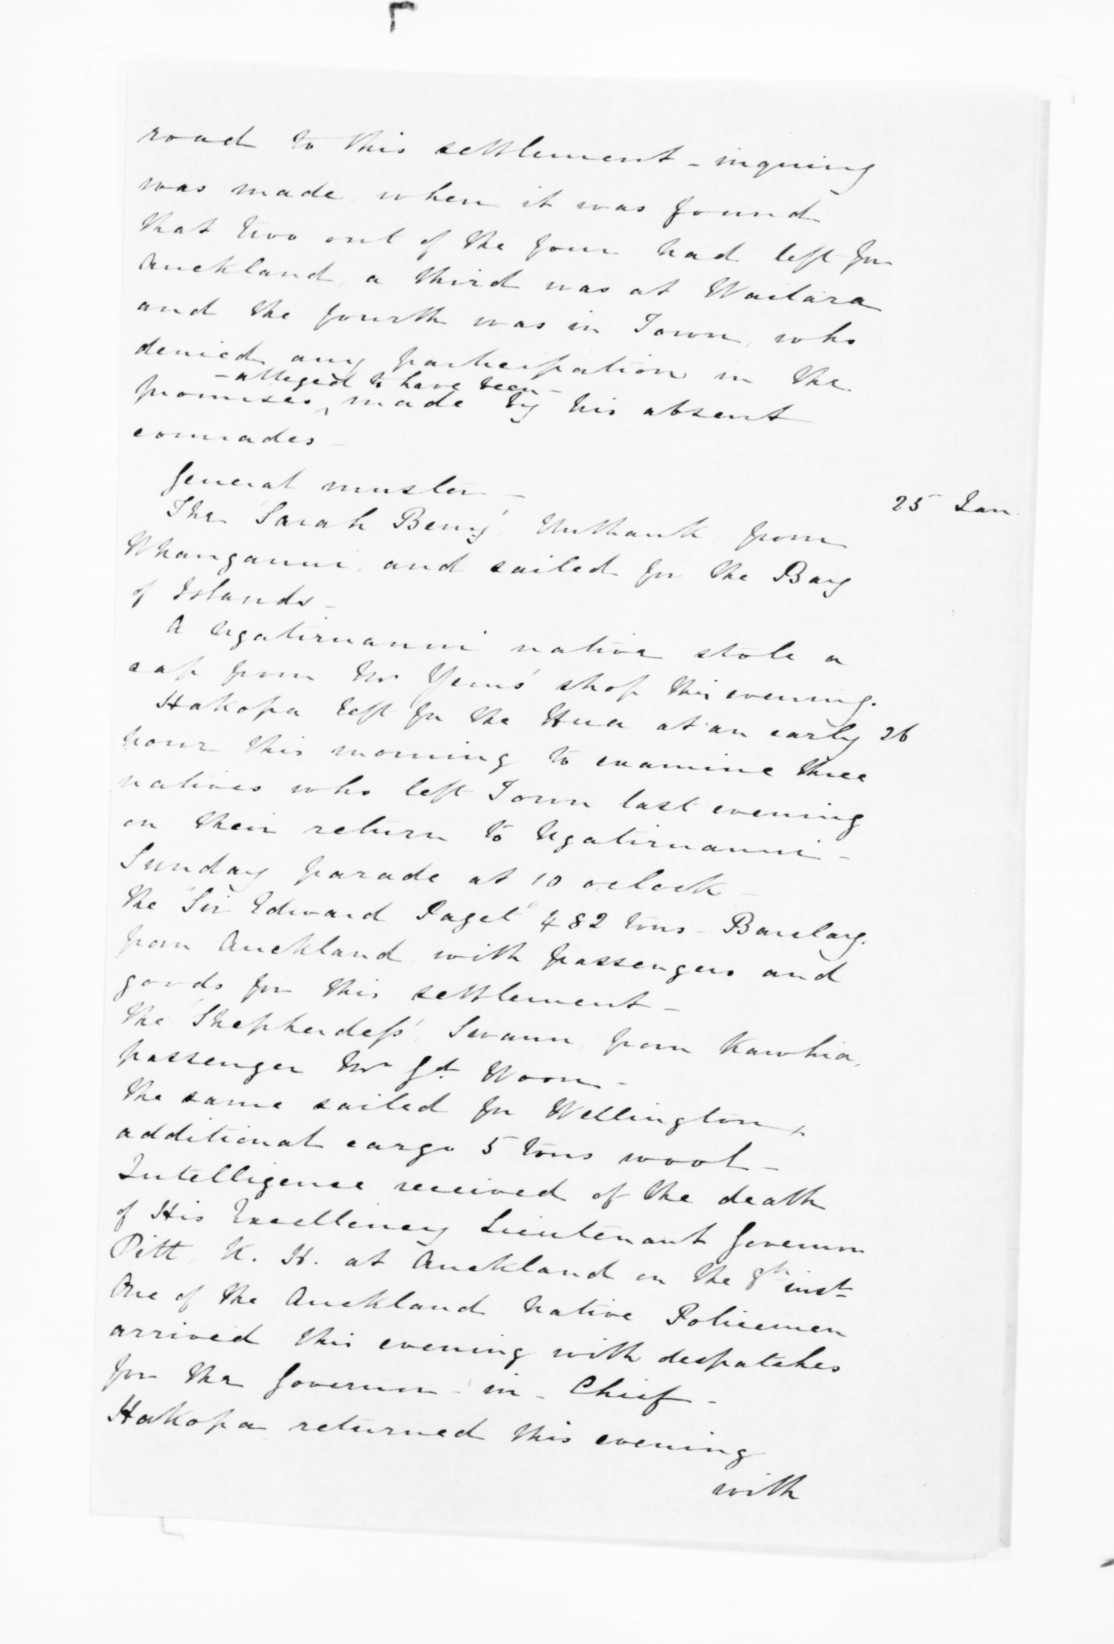 road to this settlement - inquiry
was made, when it was found
that two out of the four had left for
Auckland, a third was at Waitara
and the fourth was in Town, who
denied any participation in the
- alleged to have been -
promises, made by his absent
comrades -
General muster -
25 Jan.
The 'Sarah Berry' Unthank, from
Whanganui, and sailed for the Bay
of Islands -
A Ngatiruanui native stole a
cap from Mr Yems' shop this evening.
Hakopa left for the Hua at an early 26
hour this morning to examine three
natives who left Town last evening
on their return to Ngatiruanui -
Sunday parade at 10 oclock -
The "Sir Edward Paget" 482 tons - Barclay.
from Auckland with passengers and
goods for this settlement -
The 'Shepherdess', Swann, from Kawhia,
passenger Mr Gd. Woon -
The same sailed for Wellington,
additional cargo 5 tons wool -
Intelligence received of the death
of His Excellency Lieutenant Governor
Pitt, K. H. at Auckland on the 8th inst-
One of the Auckland Native Policemen
arrived this evening with despatches
for the Governor - in - Chief -
Hakopa returned this evening
with